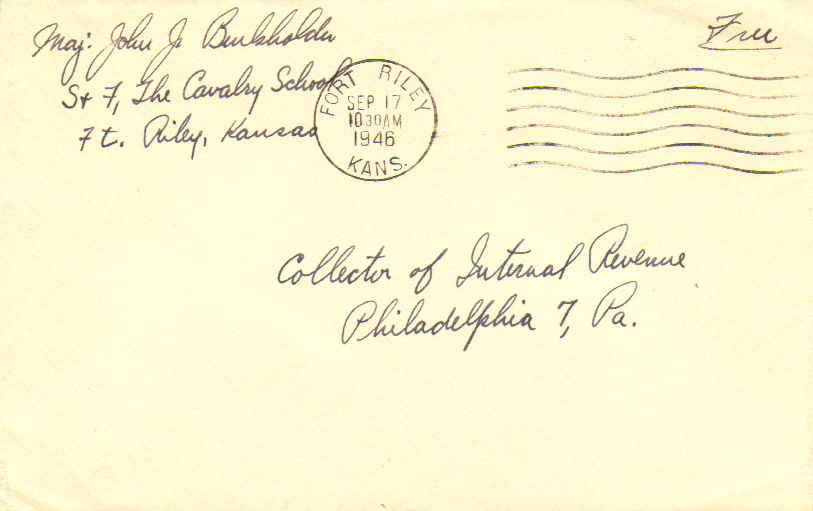 Maj. John J. Burkholder
St 7, The Cavalry School
Ft. Riley, Kansas
Free
FORT RILEY
SEP 17
10 30 AM
1946
KANS.
Collector of Internal Revenue
Philadelphia 7, Pa.